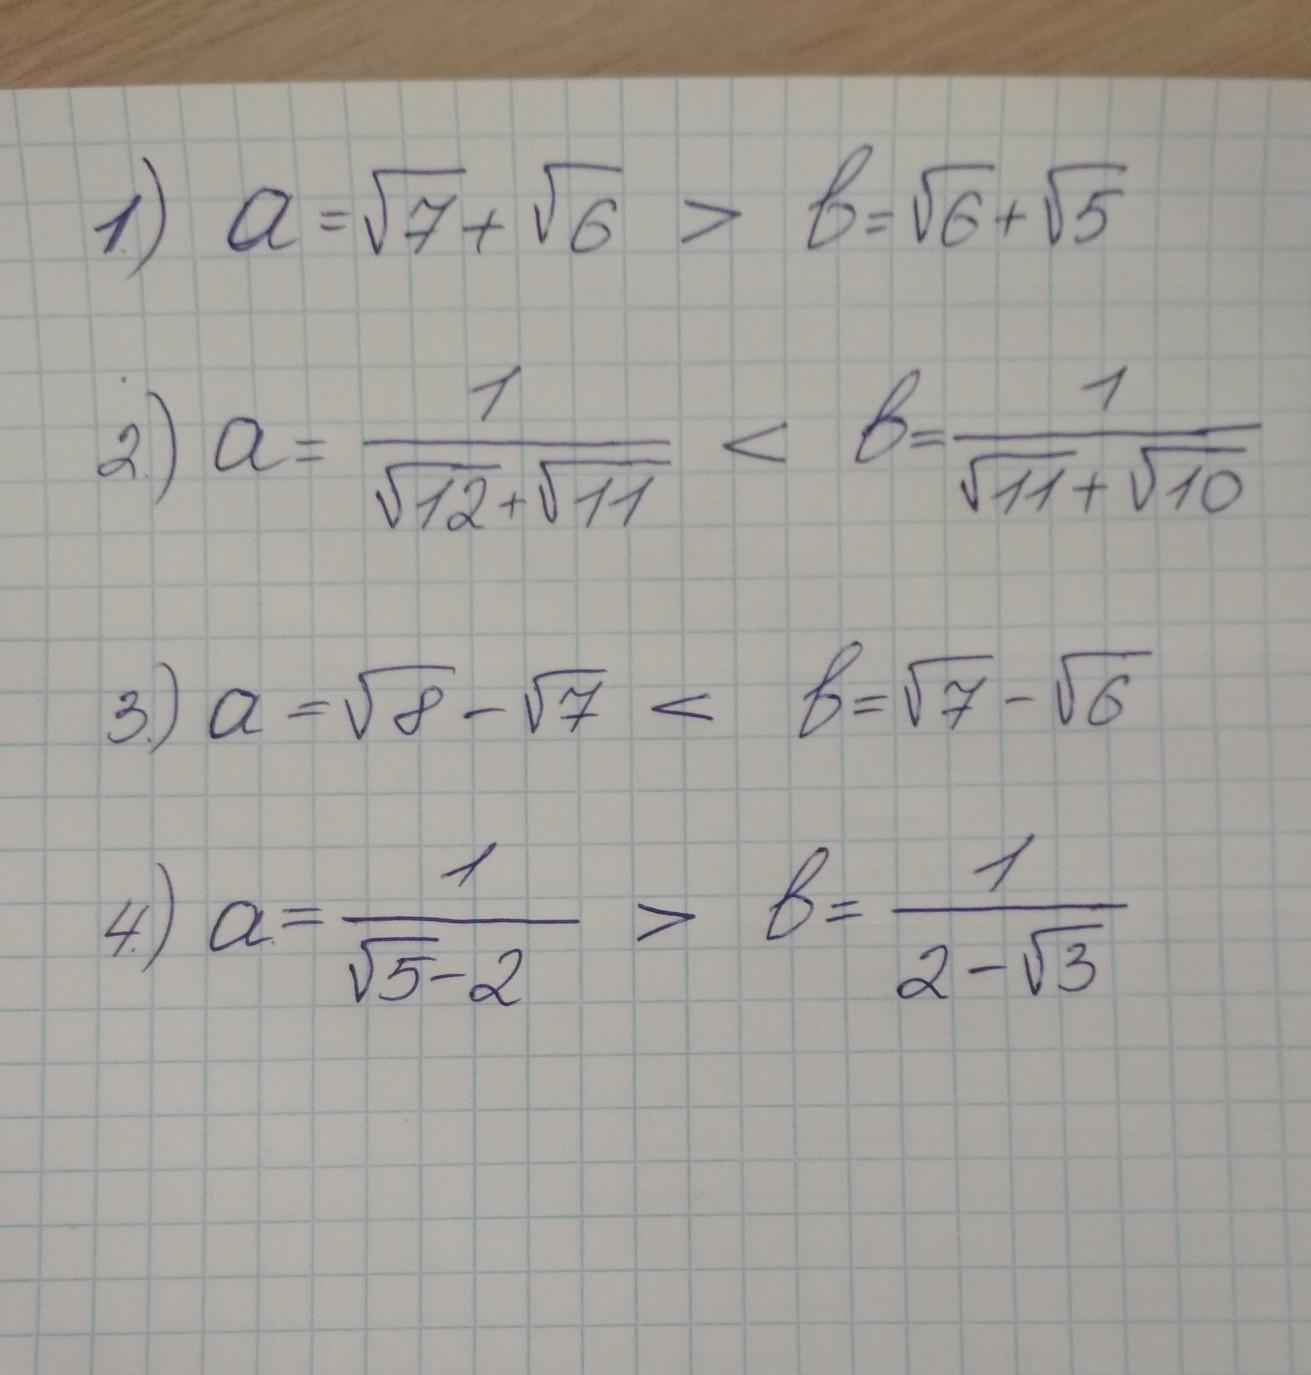 1.) a = √7 + √6 > b = √6 + √5
2.) a = 1/(√12 + √11) < b = 1/(√11 + √10)
3.) a = √8 - √7 < b = √7 - √6
4.) a = 1/(√5 - 2) > b = 1/(2 - √3)